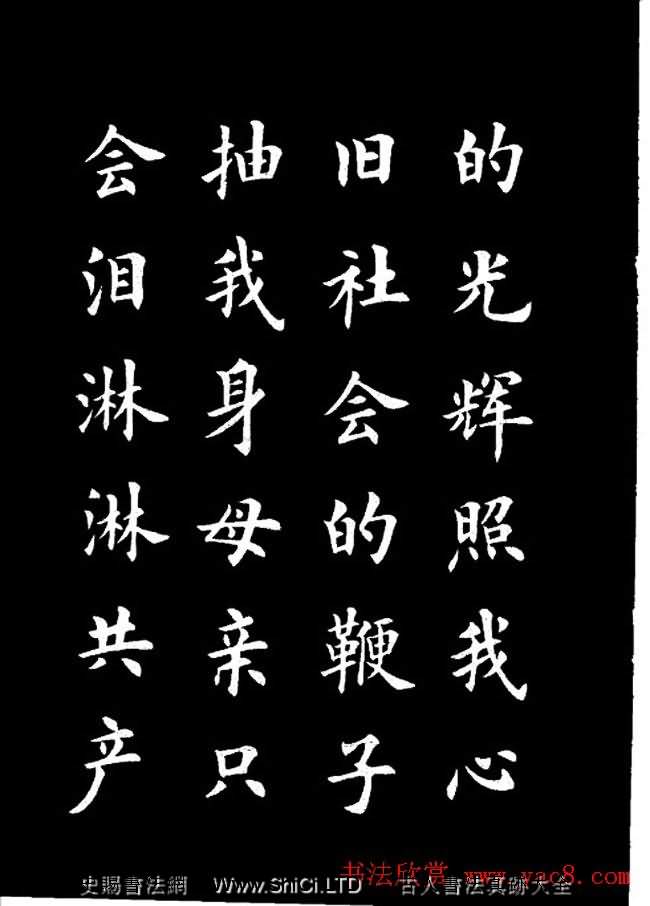 的光辉照我心
旧社会的鞭子
抽我身母亲只
会泪淋淋共产
书法欣赏 www.yac8.com
史賜書法網 Www.ShiCi.LTD 古人書法真跡大全